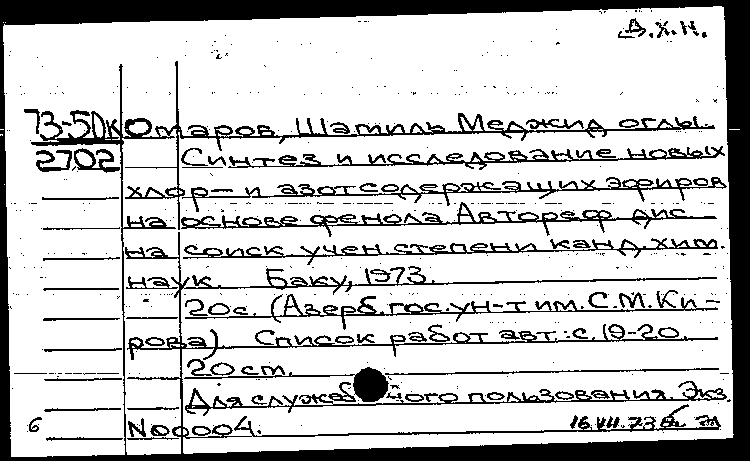 Д.Х.Н.
73-5ДК Отаров, Шамиль Меджид оглы.
2702 Синтез и исследование новых
хлор- и азотсодержащих эфиров
на основе фенола Автореф дис.
на соиск учен. степени канд. хим.
наук. Баку, 1973.
20с. (Азерб. гос. ун-т им. С.М. Ки-
рова). Список работ авт.: с. 19-20.
20 см.
Для служебного пользования. Экз
N00004.
6 16.VII.73